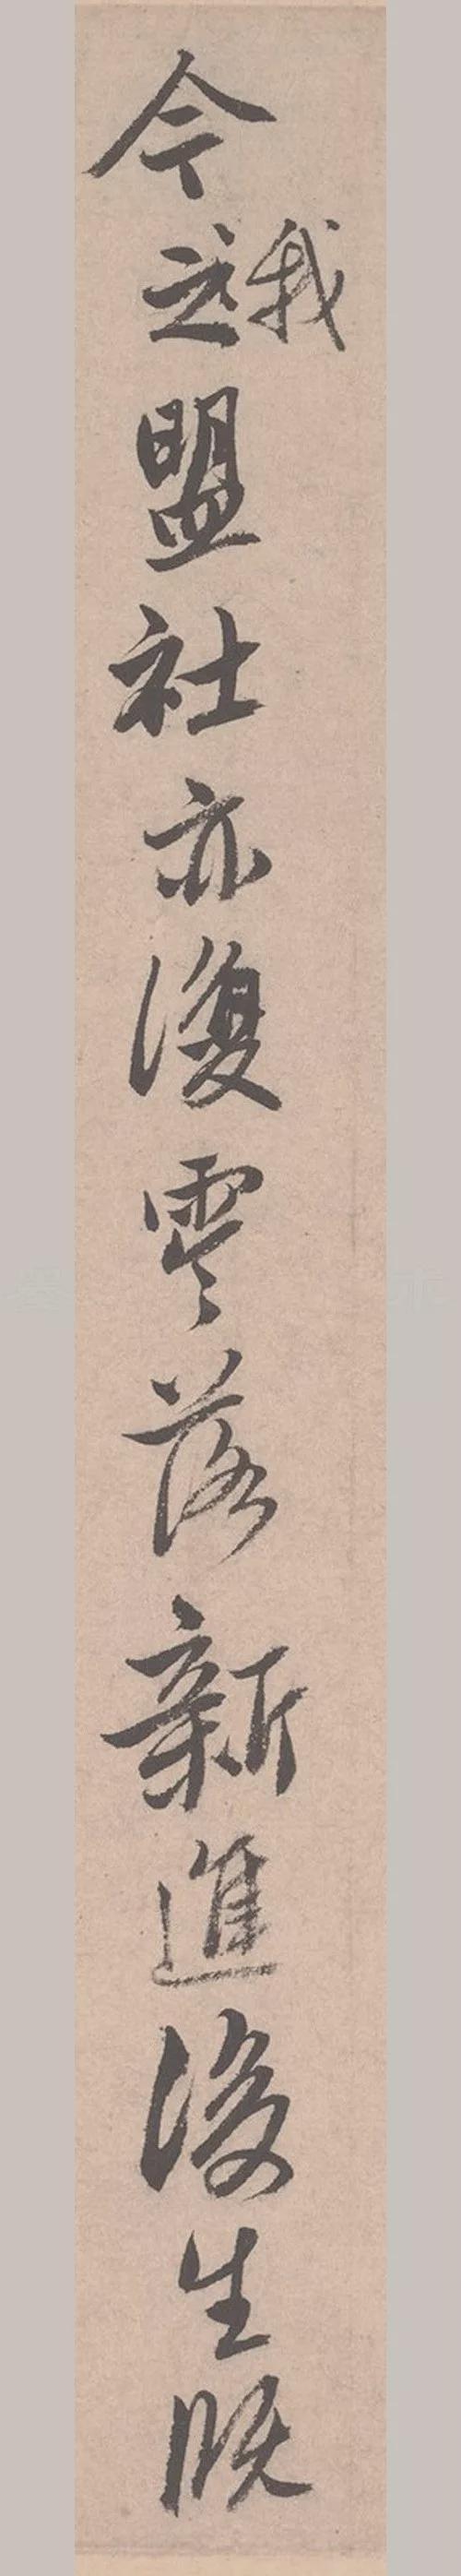 今我之盟社亦復零落新進後生既